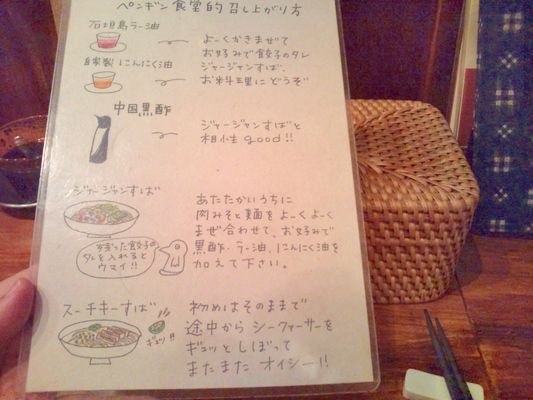 ペンギン食堂的召し上がり方
石垣島ラー油
自家製にんにく油
よーくかきまぜて
お好みで餃子のタレ
ジャージャンすば、
お料理にどうぞ
中国黒酢
ジャージャンすばと
相性good!!
ジャージャンすば
あたたかいうちに
肉みそと麺をよーくよーく
まぜ合わせて、お好みで
黒酢・ラー油、にんにく油を
加えて下さい。
あまった餃子の
タレを入れると
ウマイ!!
スーチキーすば
初めはそのままで
途中からシークァーサーを
ギュッとしぼって
またまたオイシー!!
ギュッ!!